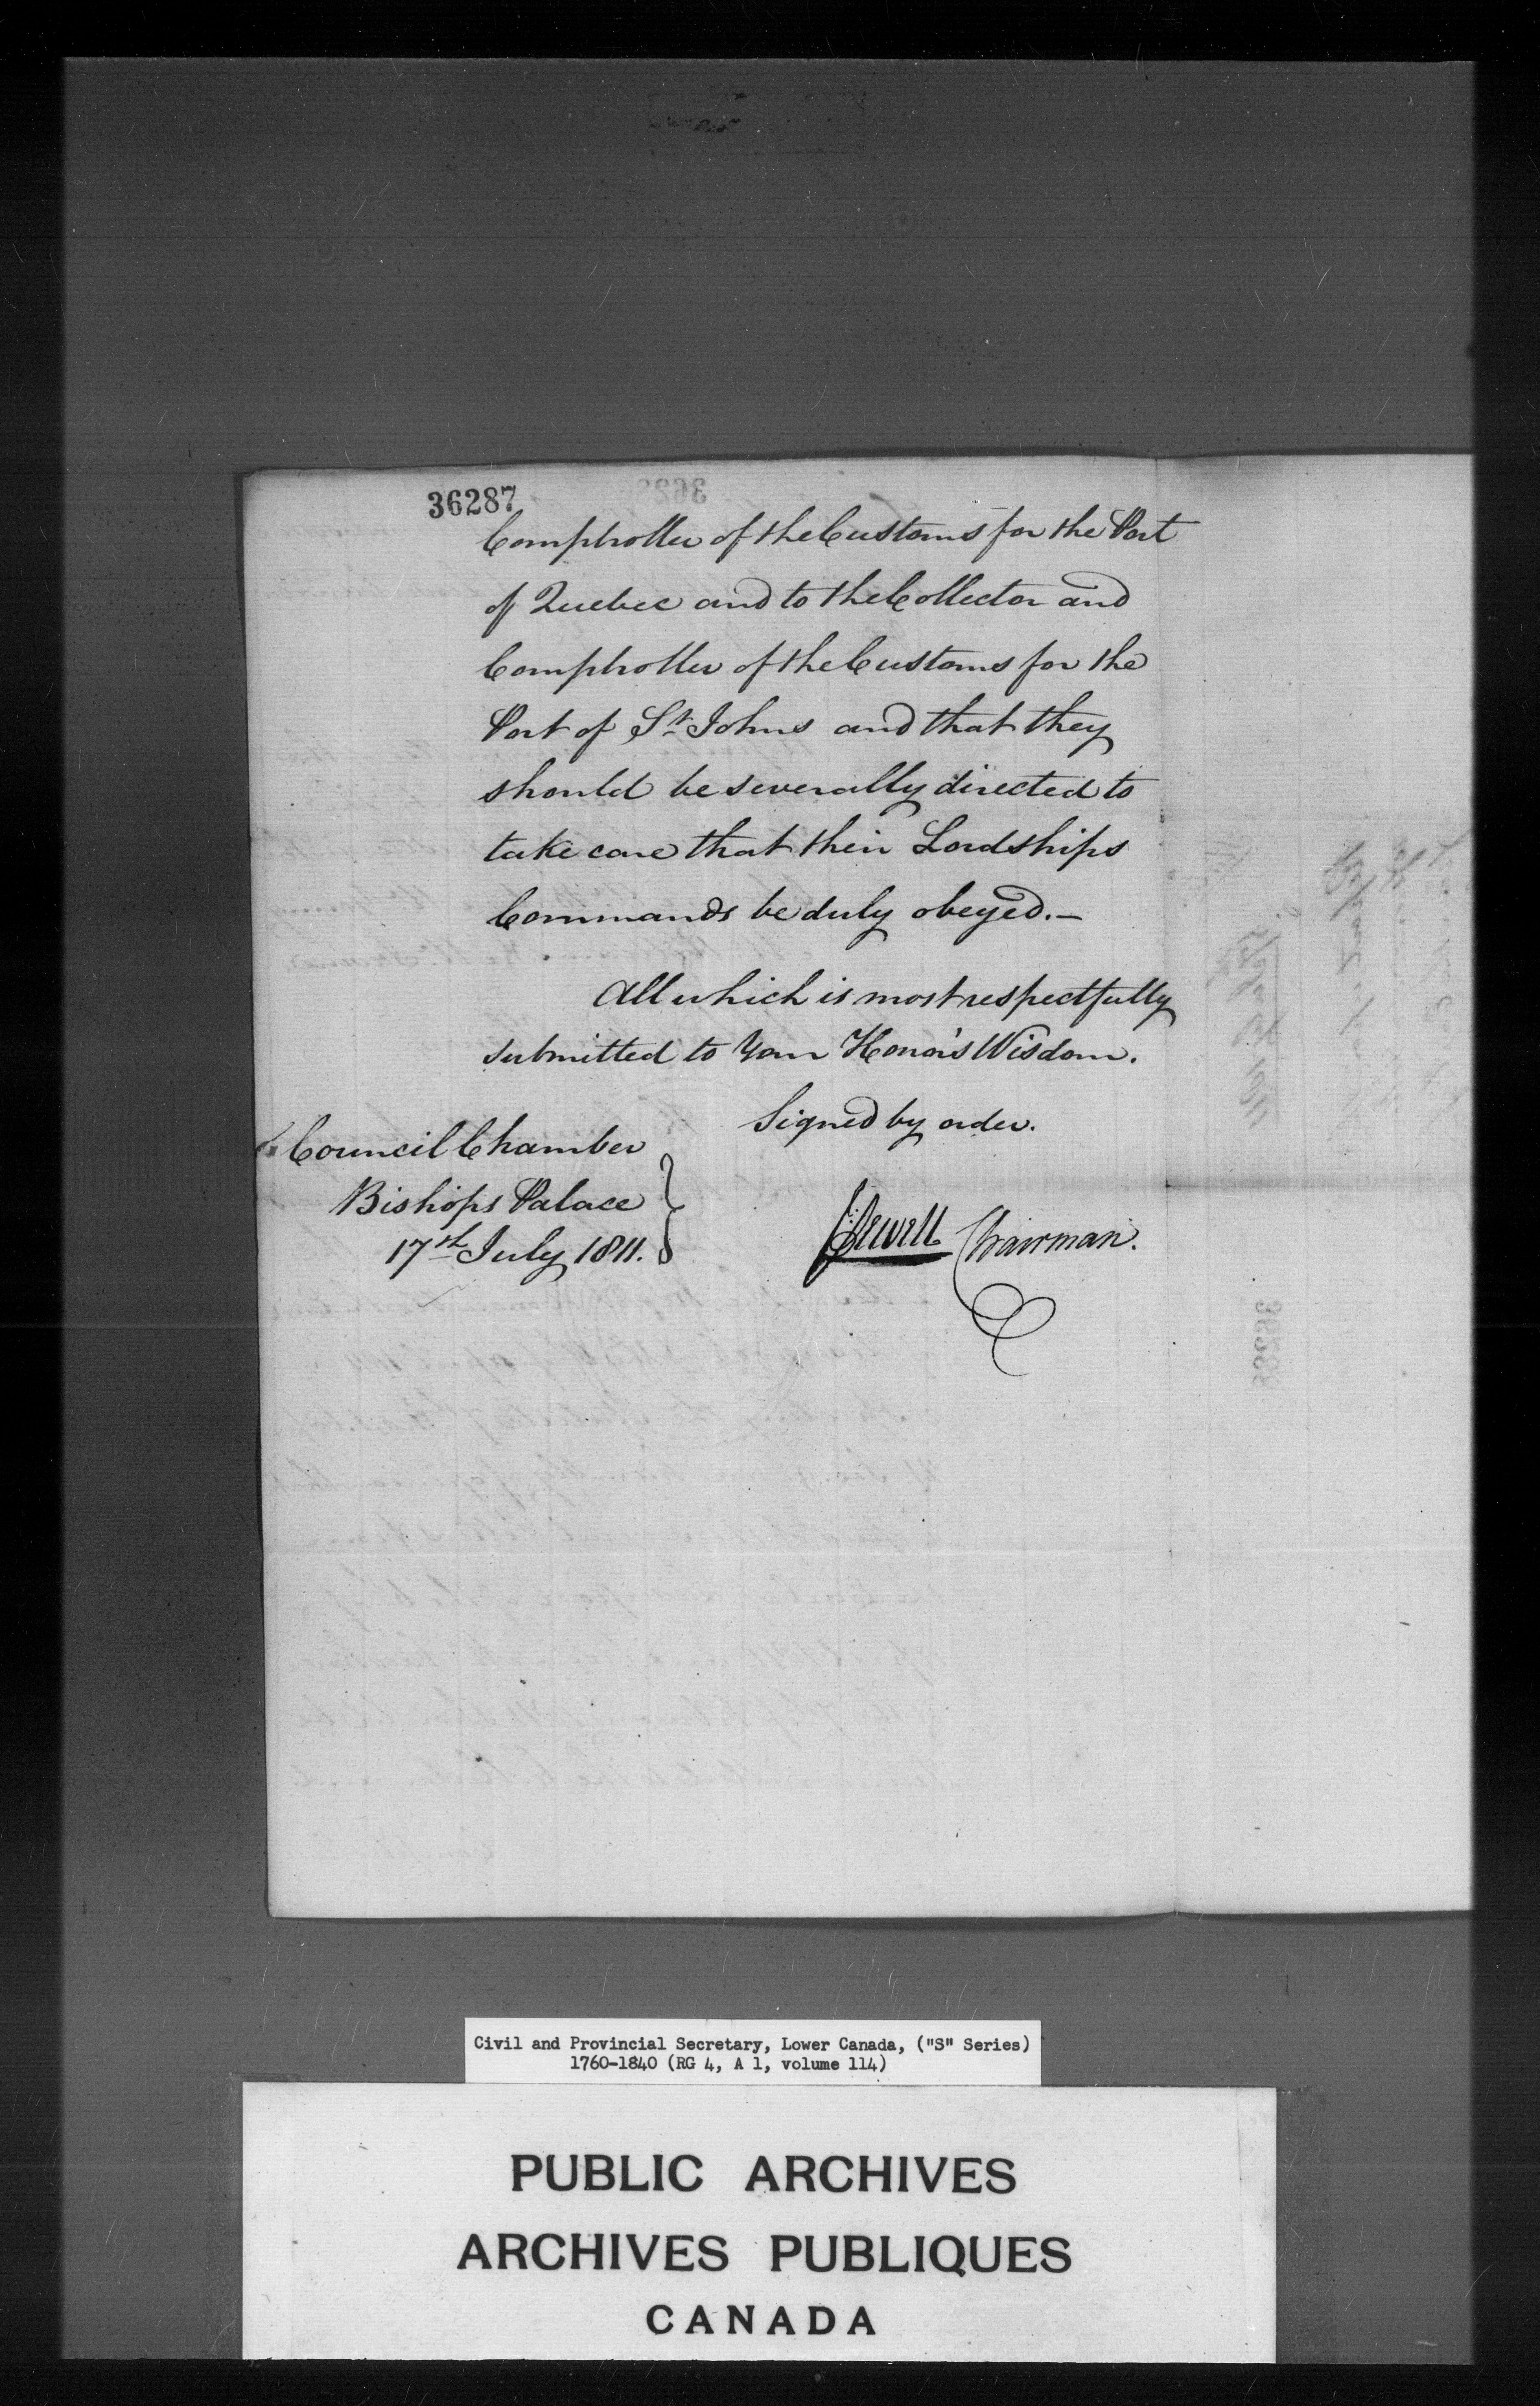 36287
Comptroller of the Customs for the Port
of Quebec and to the Collector and
Comptroller of the Customs for the
Port of St. Johns and that they
should be severally directed to
take care that their Lordships
Commands be duly obeyed.—
All which is most respectfully
submitted to Your Honor's Wisdom.
Signed by order.
Council Chamber
Bishops Palace
17th July 1811.
J Sewell Chairman.
Civil and Provincial Secretary, Lower Canada, ("S" Series)
1760-1840 (RG 4, A 1, volume 114)
PUBLIC ARCHIVES
ARCHIVES PUBLIQUES
CANADA